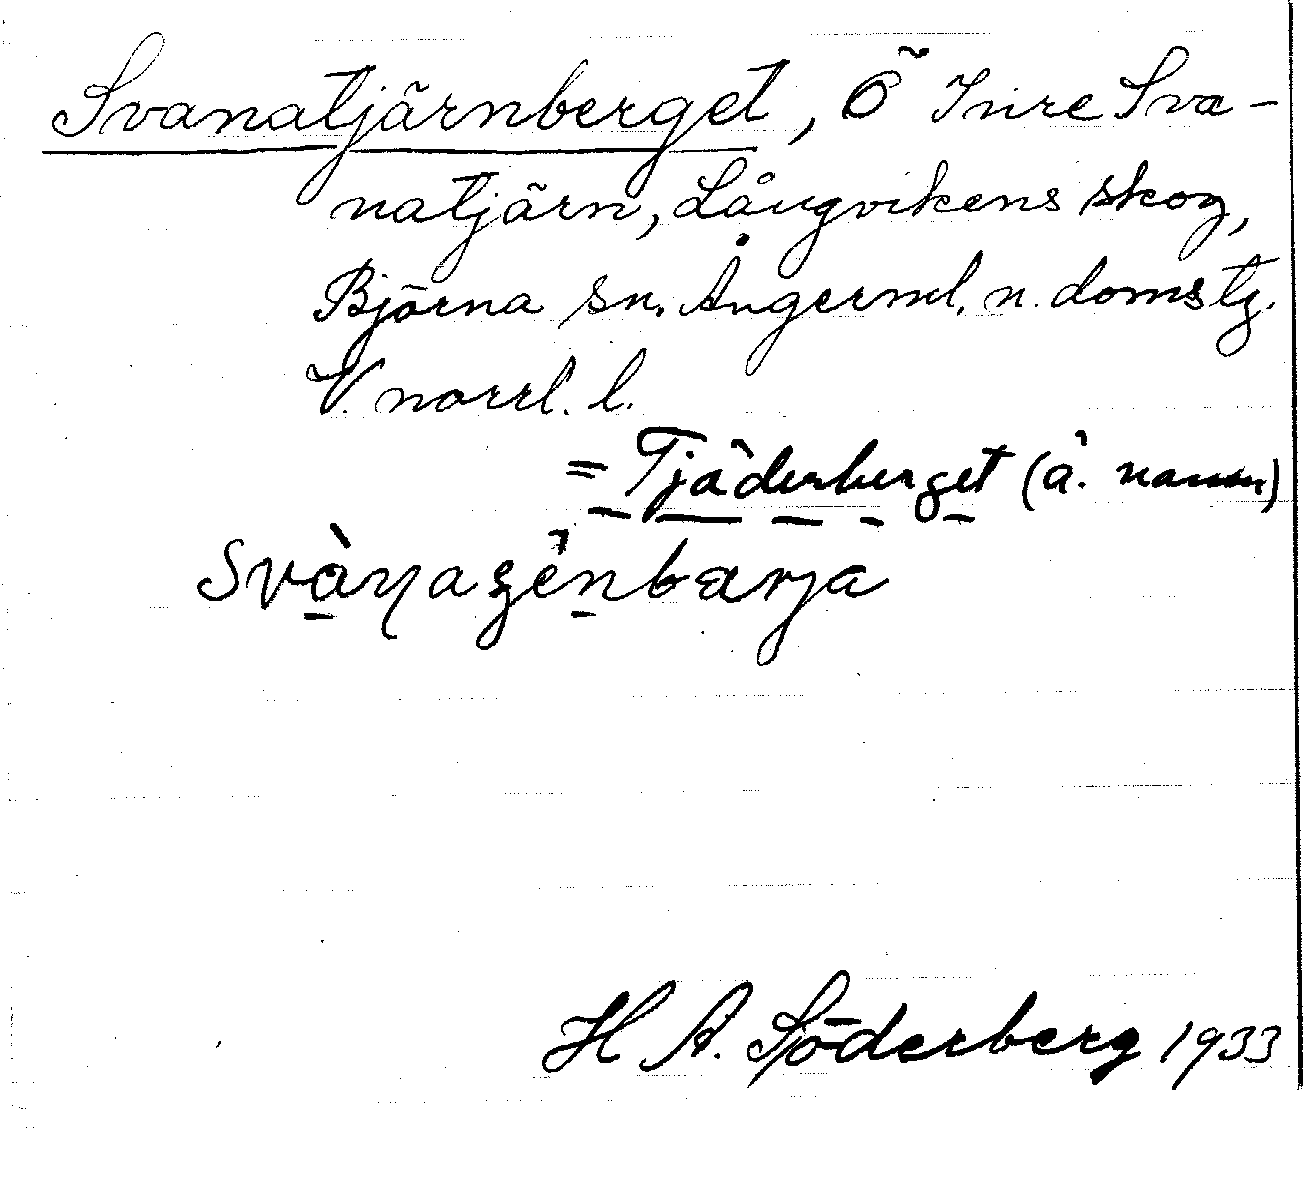 Svanatjärnberget, Ö Inre Sva-
natjärn, Långvikens skog,
Björna sn. Ångerml. n. doms tg.
V. norrl. l.
= Tjäderberget (ä. namn)
H A. Söderberg 1933